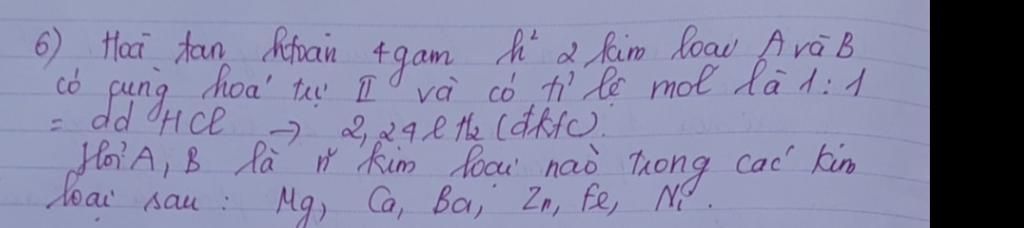 6) Hoà tan htoàn 4gam h² 2 kim loại A và B
có cùng hoá trị II và có tỉ lệ mol là 1:1
= dd HCl → 2,24l H₂ (đktc).
Hỏi A, B là n~ kim loại nào trong các kim
loại sau : Mg, Ca, Ba, Zn, Fe, Ni.